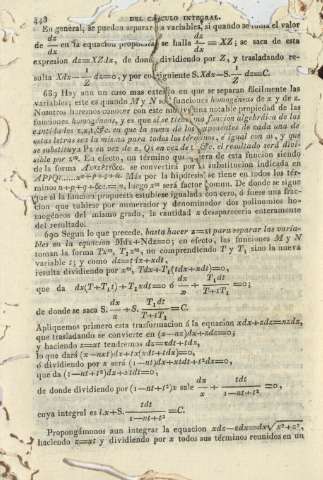 448 DEL CALCULO INTEGRAL.
En general, se pueden separar las variables, si quando se toma el valor
de dz/dx en la equacion propuesta se halla dz/dx = XZ; se saca de esta
expresion dz=XZdx, de donde, dividiendo por Z, y trasladando re-
sulta Xdx— 1/Z dz=0, y por consiguiente S.Xdx—S. 1/Z dz=C.
689 Hay aun un caso mas en que se separan fácilmente las
variables; este es quando M y N son funciones homogéneas de x y de z.
Nosotros haremos conocer con este motivo una notable propiedad de las
funciones homogéneas, y es que si se tiene una funcion algebráica de las
cantidades x,z,t,&c. en que la suma de los exponentes de cada una de
estas letras sea la misma para todos los términos, é igual con m, y que
se substituya Px en vez de z, Qx en vez de t, &c. el resultado será divi-
sible por xᵐ. En efecto, un término qualquiera de esta funcion siendo
de la forma se convertirá por la substitucion indicada en
Mas por la hipótesis se tiene en todos los tér-
minos n+p+q+&c.=m, luego xᵐ será factor comun. De donde se sigue
que si la funcion propuesta estubiese igualada con cero, ó fuese una frac-
cion que tubiese por numerador y denominador dos polinomios ho-
mogéneos del mismo grado, la cantidad x desapareceria enteramente
del resultado.
690 Segun lo que precede, basta hacer z=xt para separar las varia-
bles en la equacion Mdx+Ndz=0; en efecto, las funciones M y N
toman la forma Txᵐ, T₁xᵐ, no comprendiendo T y T₁ sino la nueva
variable t; y como dz=tdx+xdt,
resulta dividiendo por xᵐ, Tdx+T₁(tdx+xdt)=0,
que da dx(T+T₁t)+T₁xdt=0 ó dx/x + T₁dt/T+tT₁ =0;
de donde se saca S. dx/x +S. T₁dt/T+tT₁ =C.
Apliquemos primero esta trasformacion á la equacion xdx+zdx=nzdz,
que trasladando se convierte en
y haciendo z=xt tendremos dz=xdt+tdx,
lo que dará
ó dividiendo por x será
que da
de donde dividiendo por (1—nt+t²)x sale dx/x + tdt/1—nt+t² =0,
cuya integral es l.x+S. tdt/1—nt+t² =C.
Propongámonos aun integrar la equacion xdz—zdx=dx√x²+z²,
haciendo z=xt y dividiendo por x todos sus términos reunidos en un